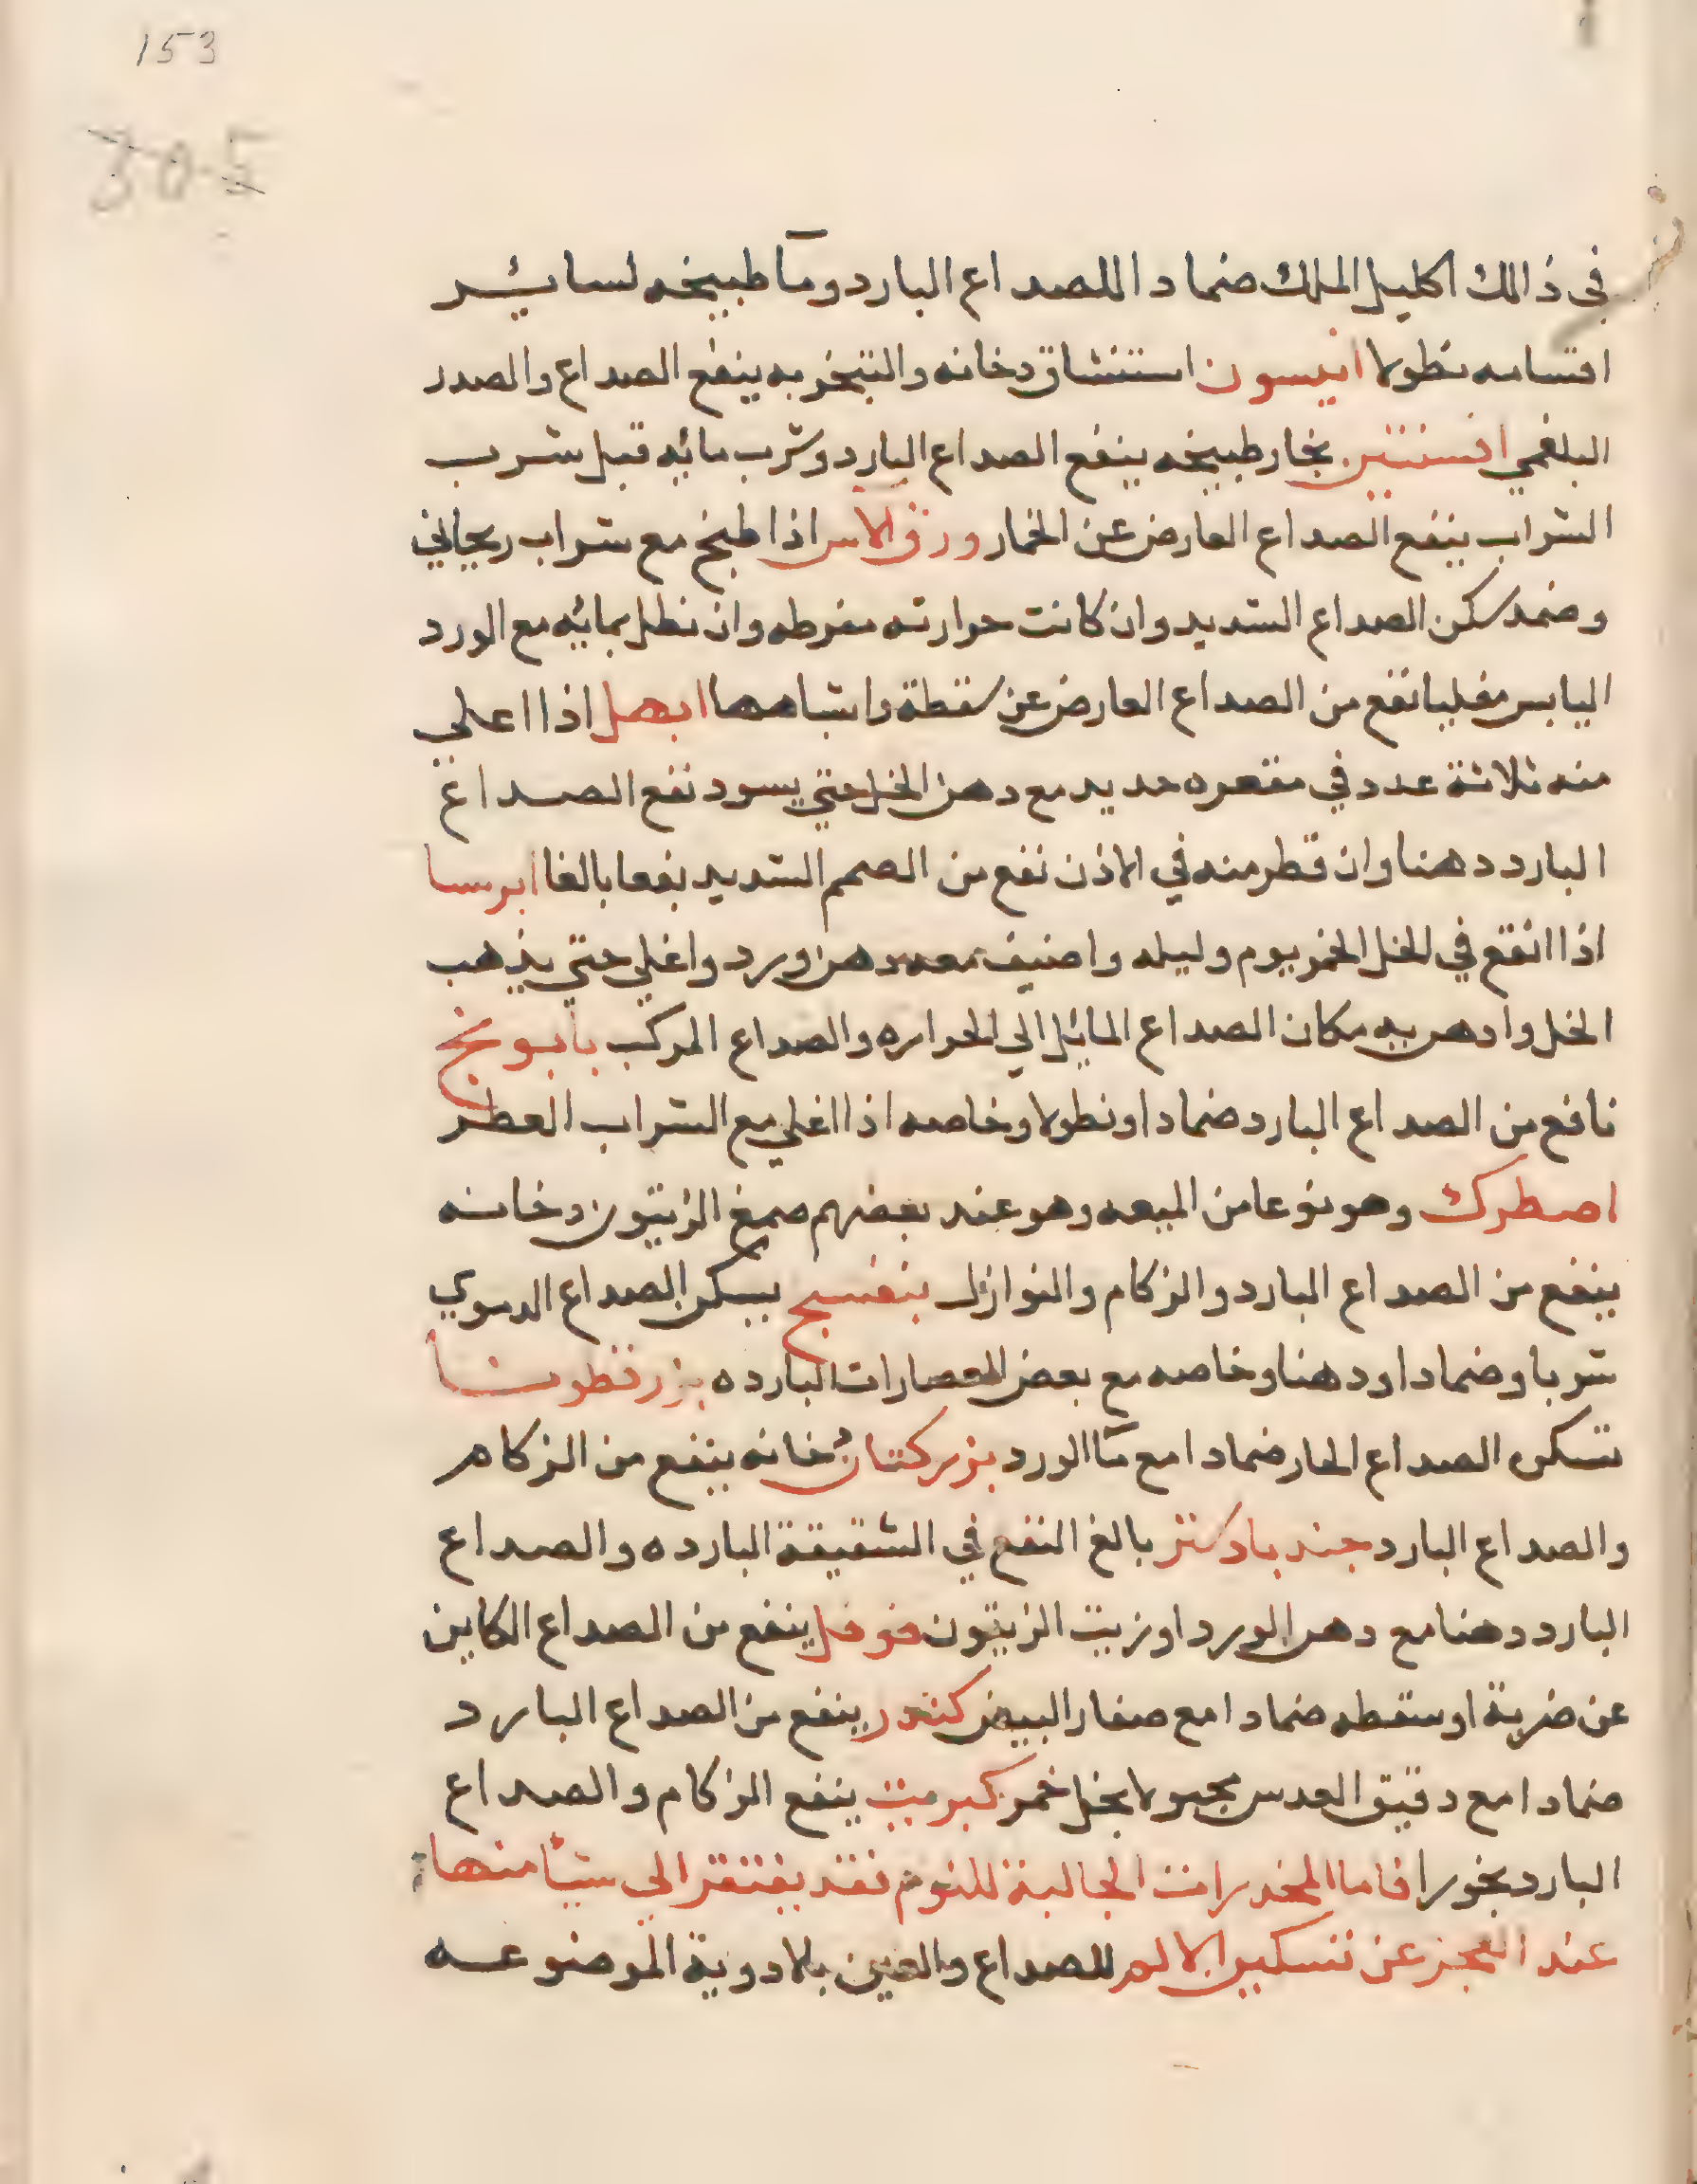 153
305
في ذالك اكليل الملك ضمادا للصداع البارد وما طبيخه لسائر
اقسامه نطولا انيسون استنشاق دخانه والتبخر به ينفع الصداع والصدر
البلغمي افسنتين بخار طبيخه ينفع الصداع البارد وشرب مائه قبل شرب
الشراب ينفع الصداع العارض عن الخمار ورق الآس اذا طبخ مع شراب ريحاني
وضمد سكن الصداع الشديد وان كانت حرارته مفرطه وان نطل بمائه مع الورد
اليابس مغليا نفع من الصداع العارض عن سقطة واشباهها ابهل اذا اغلي
منه ثلاثة عدد في مقعره حديد مع دهن الخل حتي يسود نفع الصداع
البارد دهنا وان قطر منه في الاذن نفع من الصمم الشديد نفعا بالغا ايرسا
اذا انقع في الخل الخمر يوم وليله واضيف معه دهن ورد واغلي حتي يذهب
الخل وادهن به مكان الصداع المايل الي الحراره والصداع المركب بابونج
نافع من الصداع البارد ضمادا ونطولا وخاصه اذا اغلي مع الشراب العطر
اصطرك وهو نوعا من الميعه وهو عند بعضهم صمغ الزيتون دخانه
ينفع من الصداع البارد والزكام والنوازل بنفسج يسكن الصداع الدموي
شربا وضمادا ودهنا وخاصه مع بعض العصارات البارده بزر قطونا
تسكن الصداع الحار ضمادا مع ما الورد بزر كتان دخانه ينفع من الزكام
والصداع البارد جند بادستر بالغ النفع في الشقيقة البارده والصداع
البارد دهنا مع دهن الورد او زيت الزيتون فوفل ينفع من الصداع الكاين
عن ضربة او سقطه ضمادا مع صفار البيض كندر ينفع من الصداع البارد
ضمادا مع دقيق العدس مجبولا بخل خمر كبريت ينفع الزكام والصداع
البارد بخورا فاما المخدرات الجالبة للنوم فقد يفتقر الي شيئا منها
عند العجز عن تسكين الالم للصداع والعين بالادوية الموضوعه